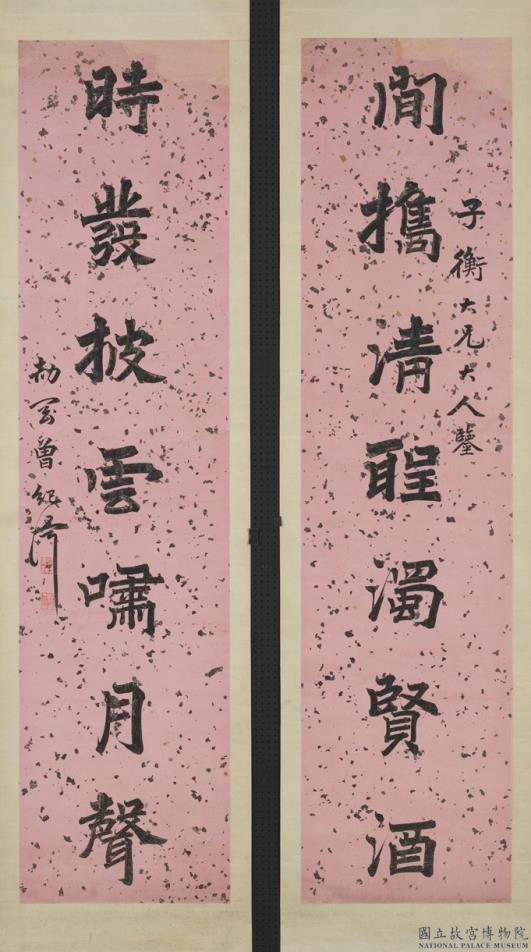 子衡大兄大人鑒
閒攜清聖濁賢酒
時發披雲嘯月聲
劼剛曾紀澤
國立故宮博物院
NATIONAL PALACE MUSEUM